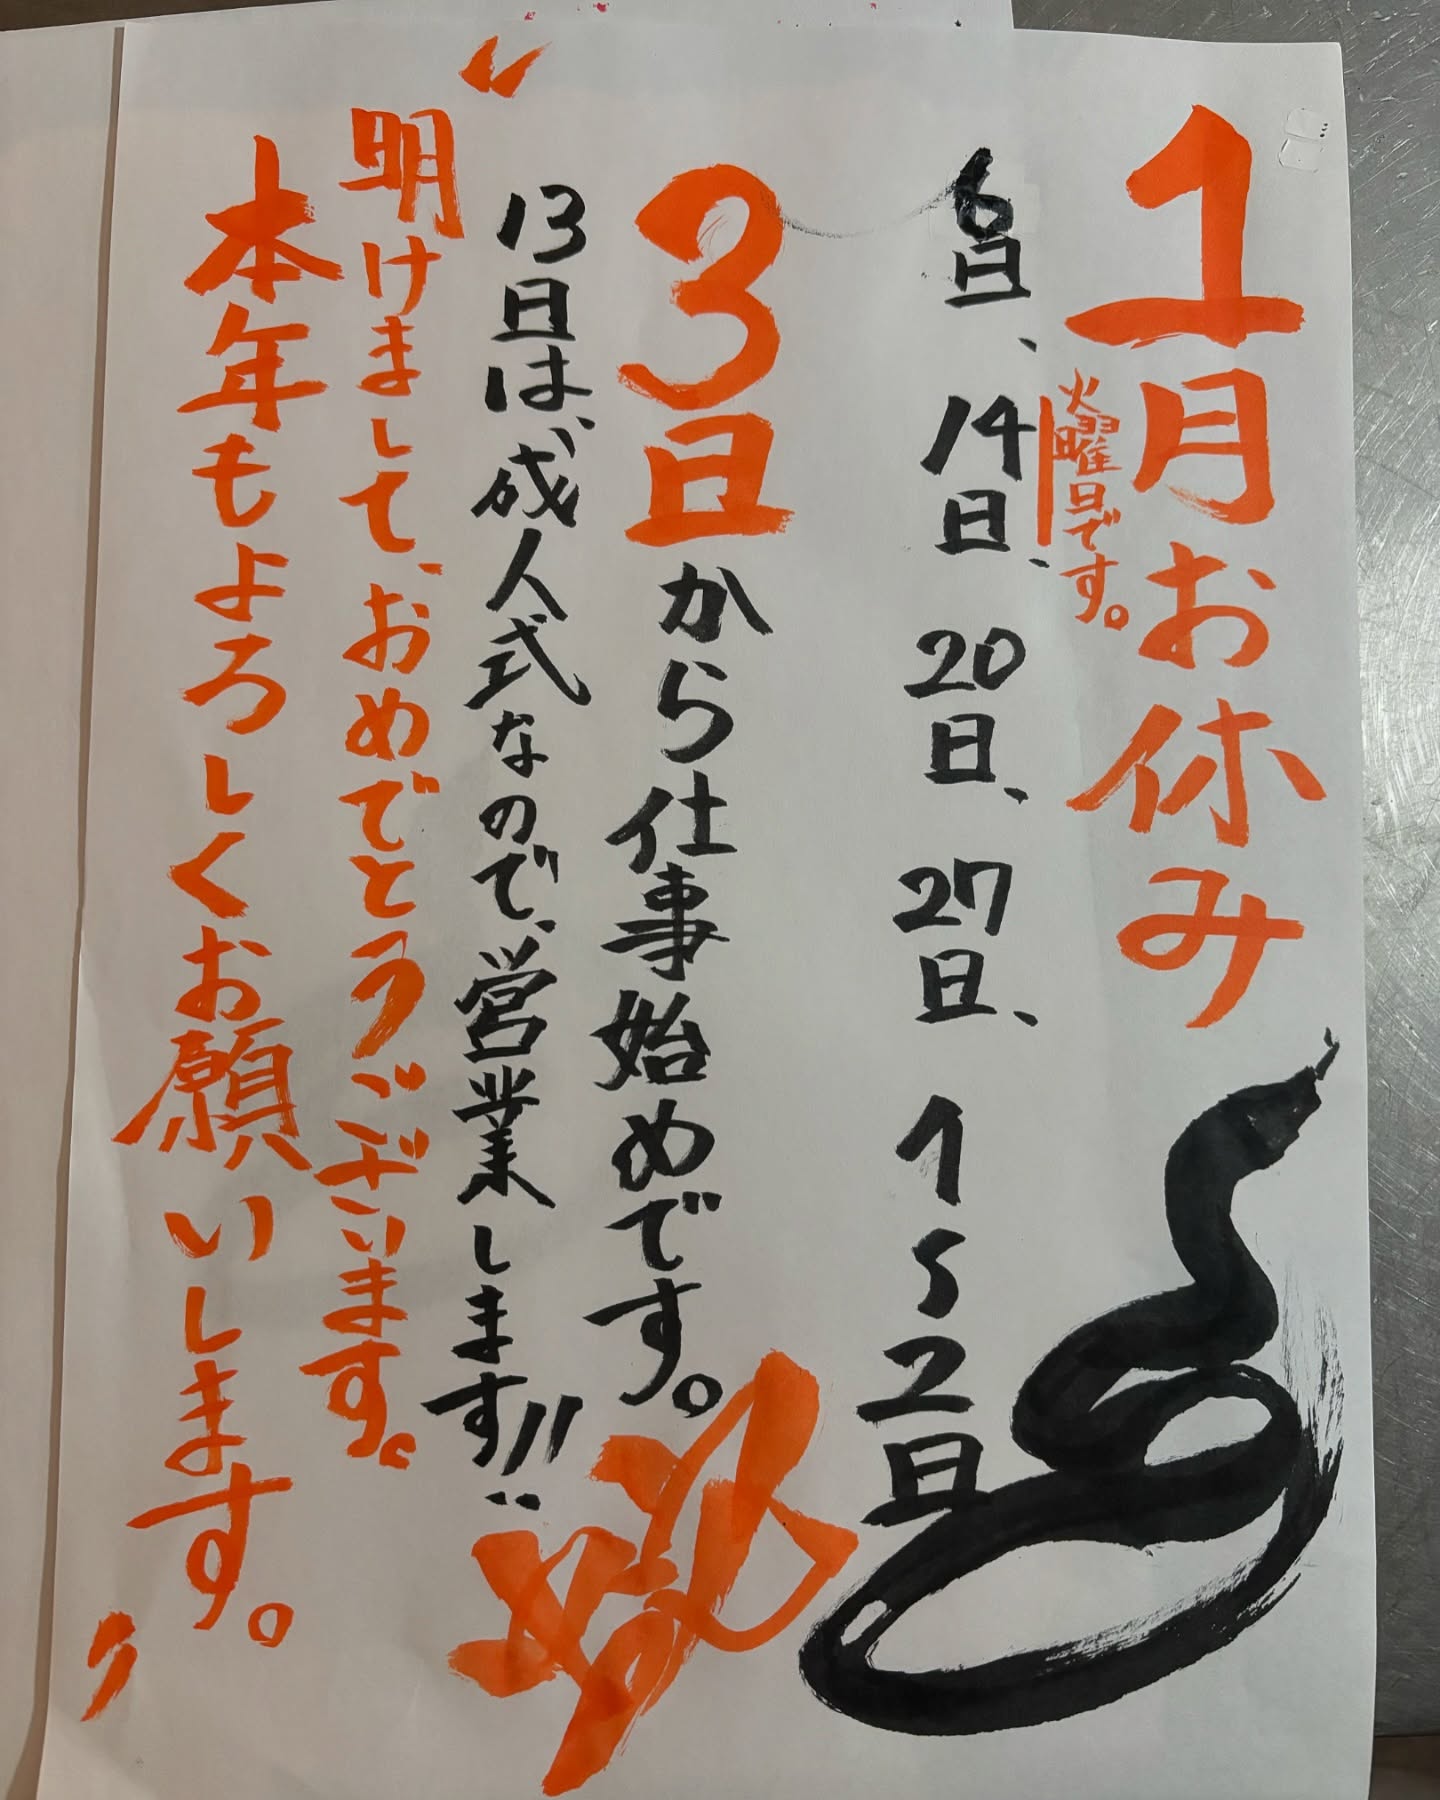 1月お休み
火曜日です。
6日、14日、20日、27日、1、2日
3日から仕事始めです。
13日は、成人式なので、営業します!!
"明けまして、おめでとうございます。
本年もよろしくお願いします。"